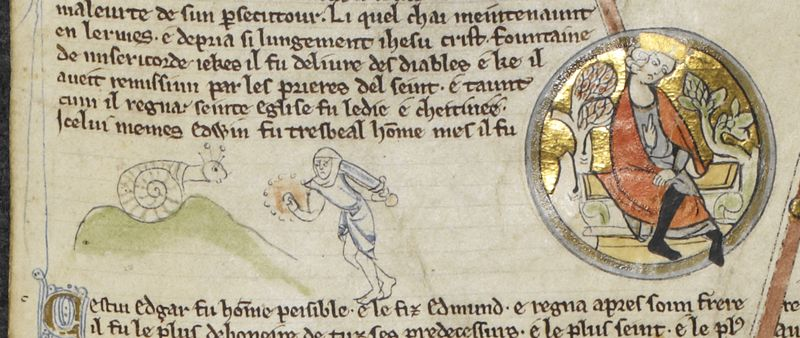 maleurte de sun p̲secutour. Li quel chai meintenaunt
en lermes. e depria si lungement ihesu crist. fountaine
de misericorde. iekes il fu deliure des diables e ke il
aueit remissiun par les prieres del seint. e taunt
cum il regna. seinte eglise fu ledie e chettiuee.
Icelui memes edwin fu tresbeal home mes il fu
Cestui edgar fu home peisible. e le fiz edmund. e regna apres soun frere
il fu le plus debonere de tuz ses predecessurs. e le plus seint. e le pl9